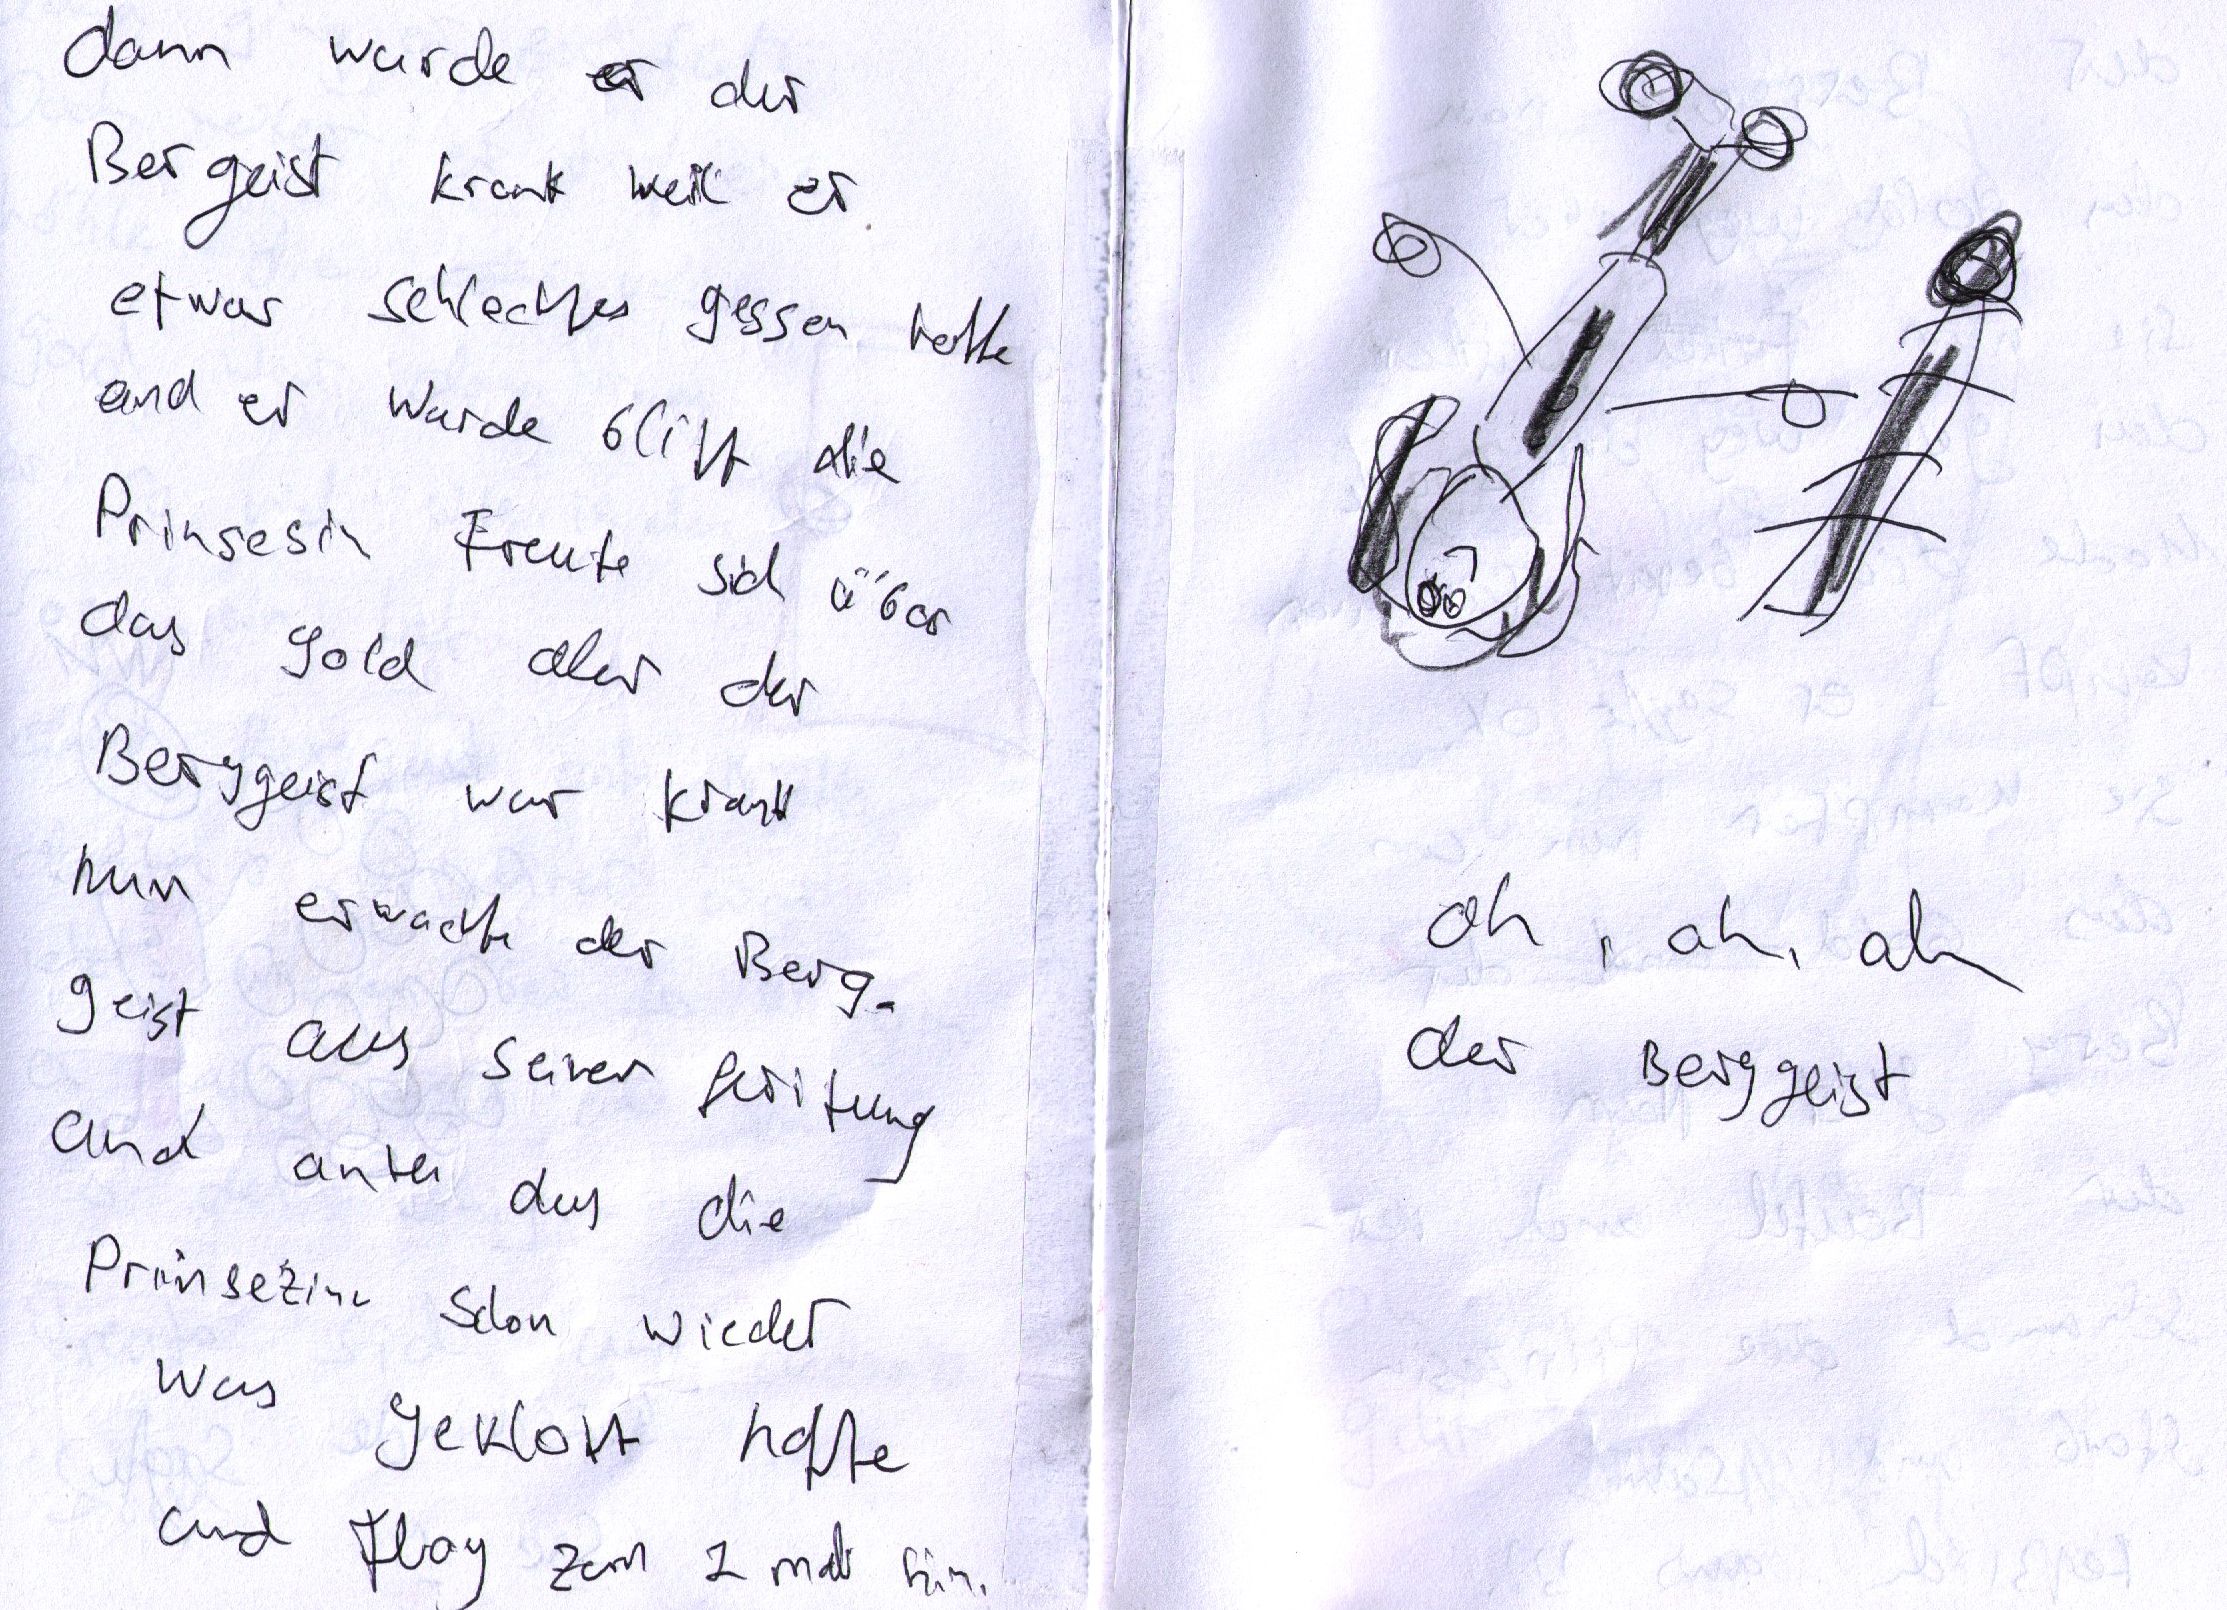 dann wurde er der
Bergeist krank weil er
etwas schlechtes gessen hatte
und er wurde die
Prinsesin Freute sich über
das gold aber der
Berggeist war krank
nun erwachte der Berg-
geist aus seiner
und das die
Prinsezin schon wieder
was geklott hatte
und Flog zum 2 mal hin.
ah, ah, ah
der Berggeist